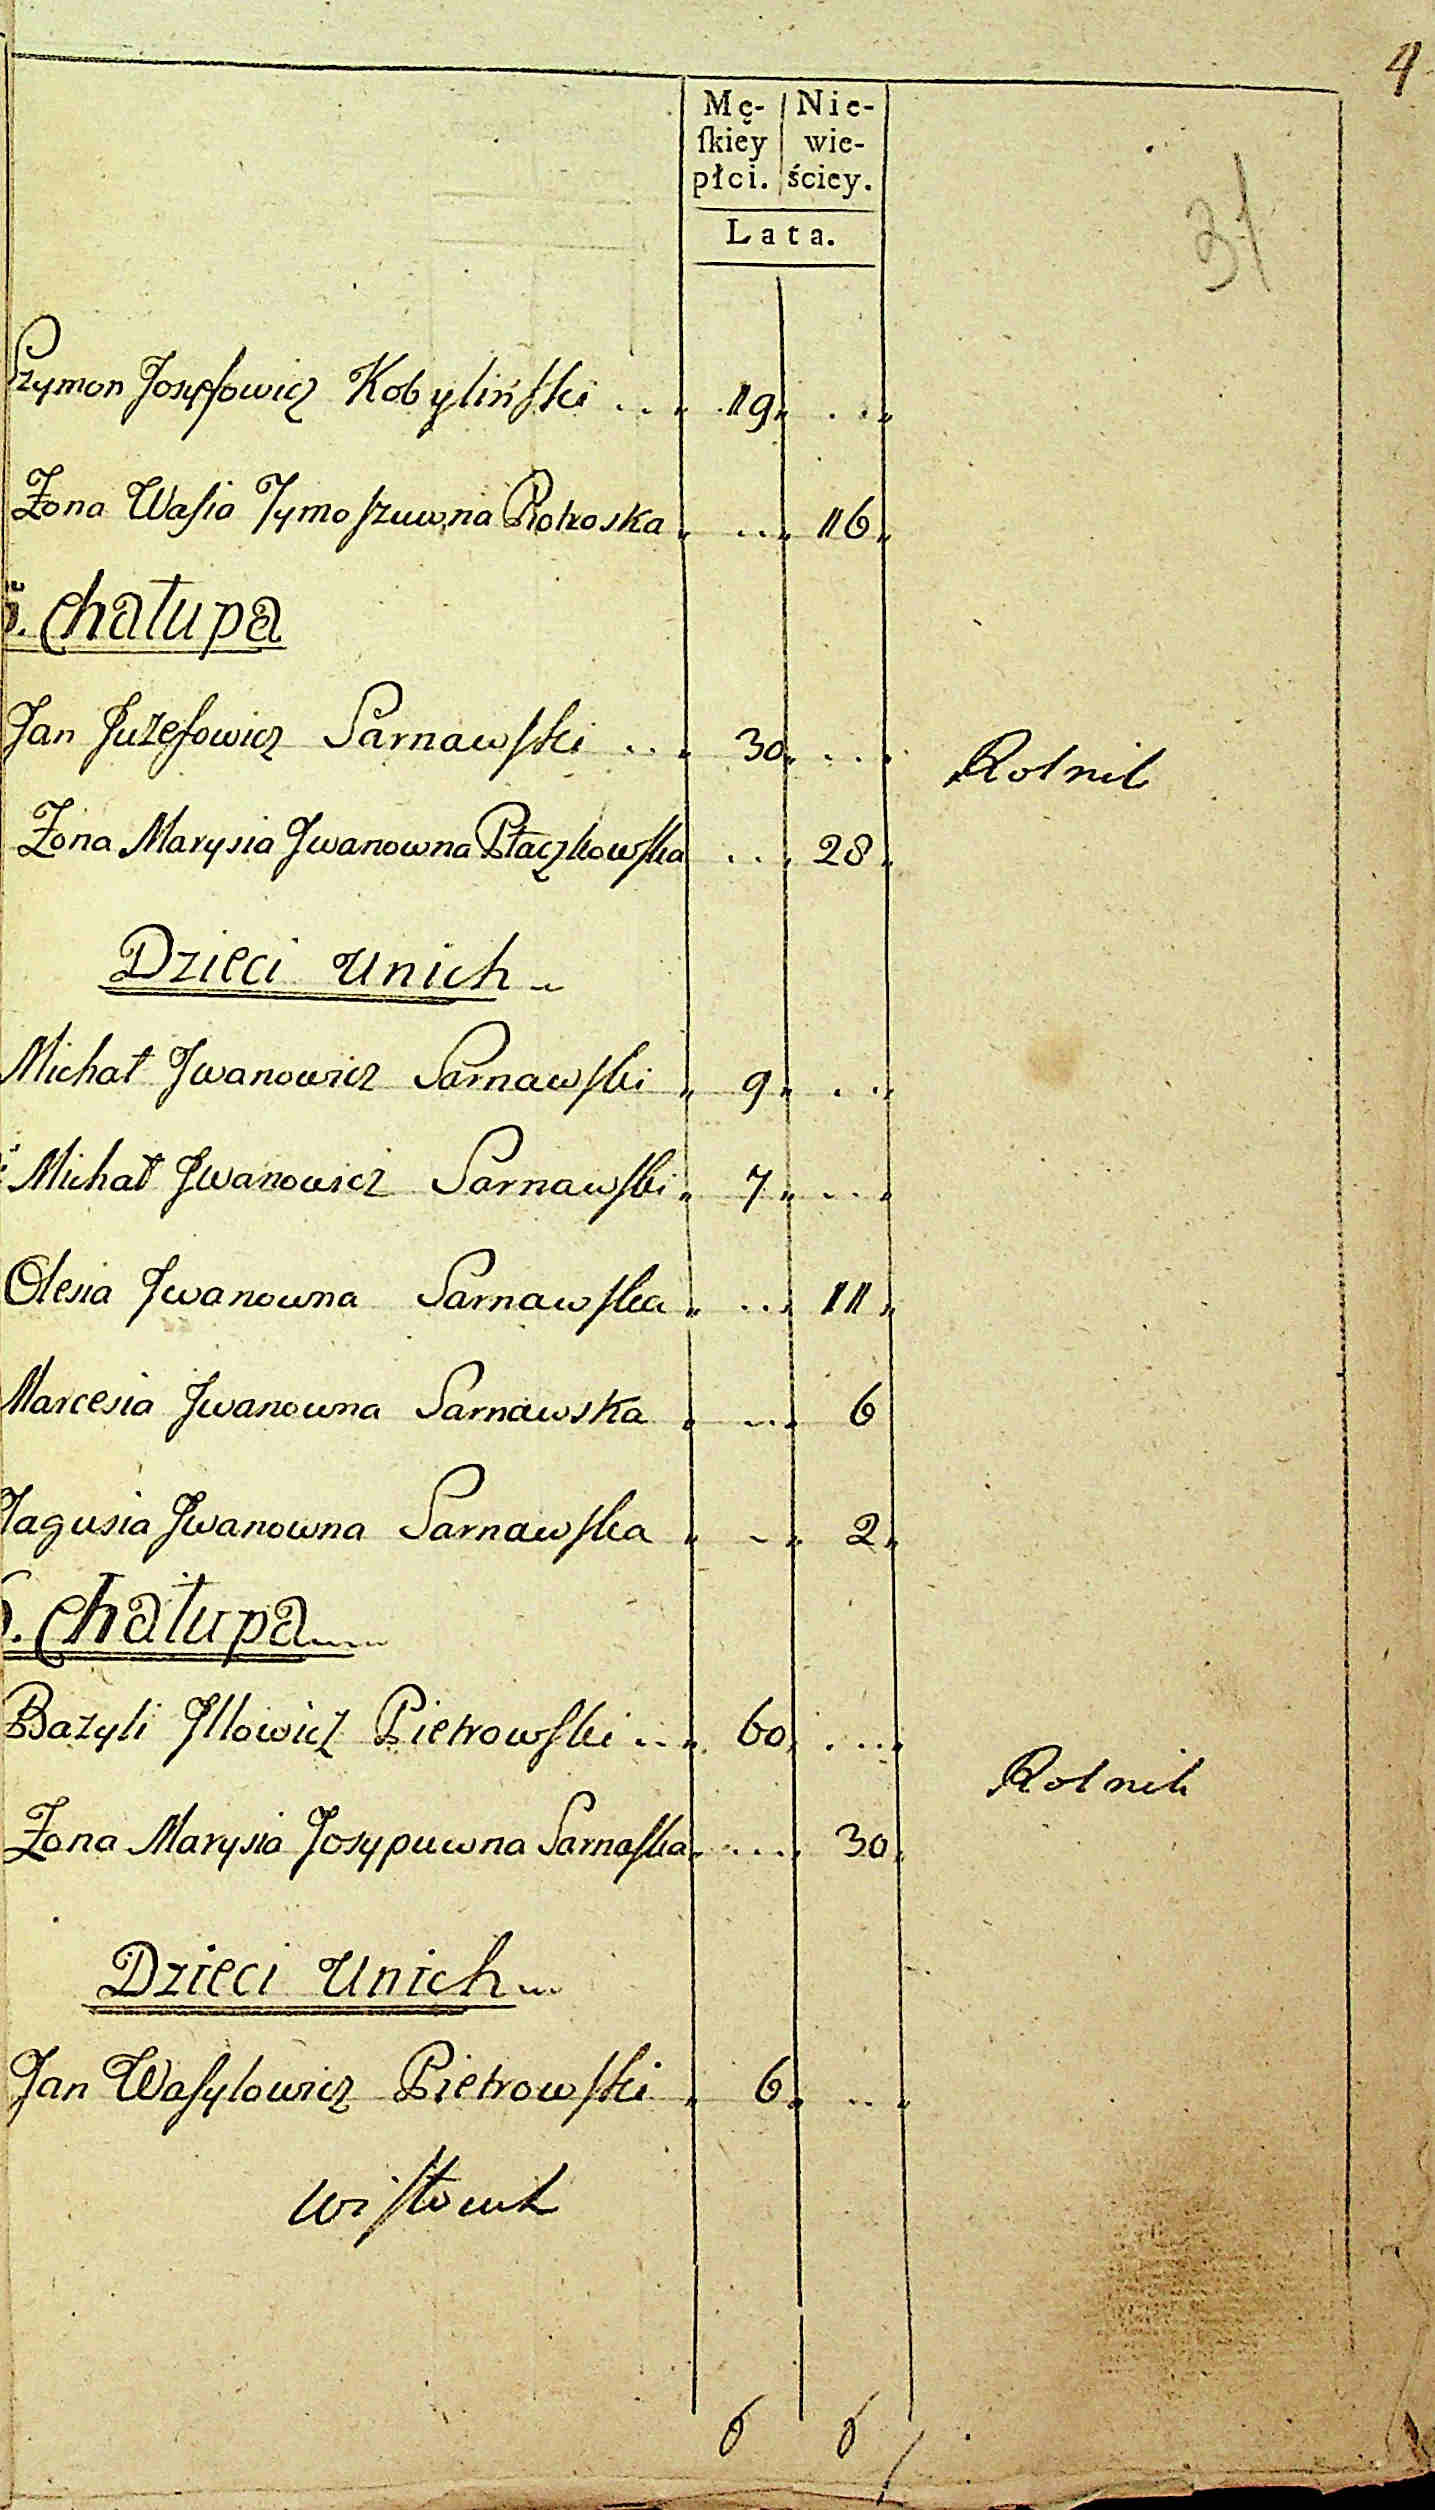 4
Mę- Nie-
ſkiey wie-
płci. ściey.
Lata.
31
Szymon Josyfowicz Kobylińſki . . . „ 19 „ . . „
Żona Waſia Tymoſzuwna Piotroska „ . . . „ 16 „
5. chałupa
Jan Juzefowicz Sarnawſki . . . „ 30 „ . . . Rolnik
Żona Marysia Jwanowna Płaczkowſka . . . „ 28 „
Dzieci unich
Michał Jwanowicz Sarnawſki „ 9 „ . . „
Michał Jwanowicz Sarnawſki „ 7 „ . . . „
Olesia Jwanowna Sarnawſka „ . . . „ 11 „
Marcesia Jwanowna Sarnawska „ . . . „ 6
Jagusia Jwanowna Sarnawſka „ . . „ 2 „
6. chałupa
Bazyli Jllowicz Pietrowſki . . „ 60 „ . . . „ Rolnik
Żona Marysia Josypuwna Sarnaſka . . . . „ 30 „
Dzieci unich
Jan Waſylowicz Pietrowſki „ 6 „ . . „
6 6